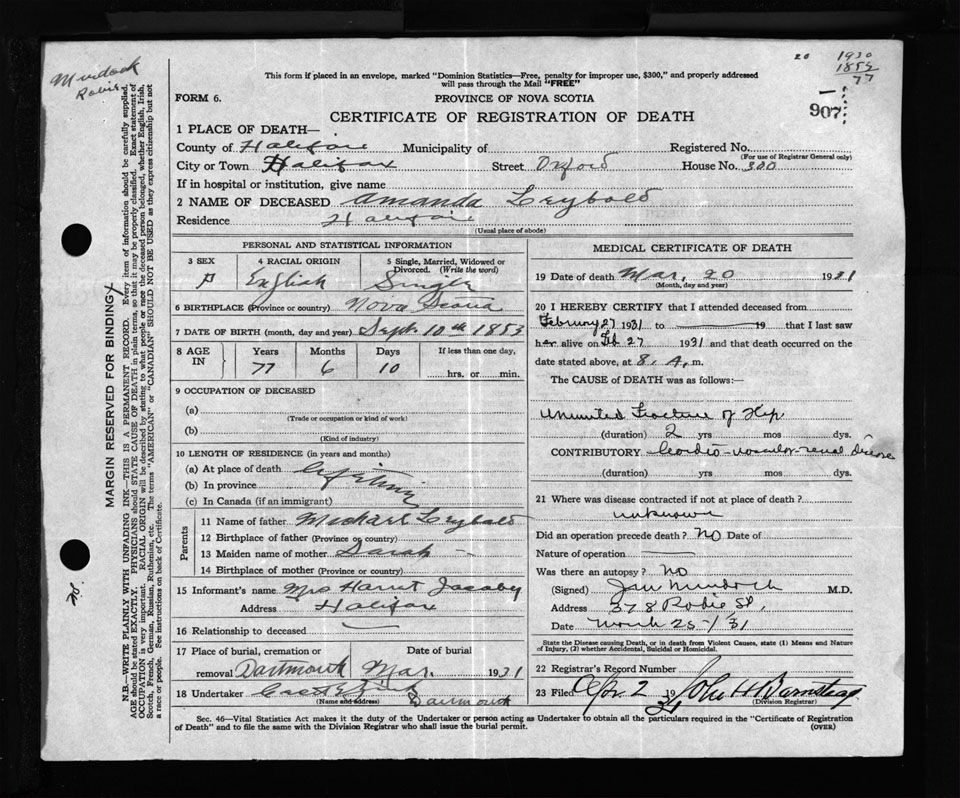 Murdock
Robie
20
1930
1853
77
This form if placed in an envelope, marked "Dominion Statistics—Free, penalty for improper use, $300," and properly addressed
will pass through the Mail "FREE"
FORM 6.
PROVINCE OF NOVA SCOTIA
907
CERTIFICATE OF REGISTRATION OF DEATH
1 PLACE OF DEATH—
County of Halifax Municipality of Registered No.
(For use of Registrar General only)
City or Town Halifax Street Oxford House No. 300
If in hospital or institution, give name
2 NAME OF DECEASED Amanda Leybold
Residence Halifax
(Usual place of abode)
PERSONAL AND STATISTICAL INFORMATION
3 SEX 4 RACIAL ORIGIN 5 Single, Married, Widowed or Divorced. (Write the word)
F English Single
6 BIRTHPLACE (Province or country) Nova Scotia
7 DATE OF BIRTH (month, day and year) Sept. 10th 1853
8 AGE IN Years Months Days If less than one day,
77 6 10 hrs. or min.
9 OCCUPATION OF DECEASED
(a)
(Trade or occupation or kind of work)
(b)
(Kind of industry)
10 LENGTH OF RESIDENCE (in years and months)
(a) At place of death Lifetime
(b) In province
(c) In Canada (if an immigrant)
Parents
11 Name of father Michael Leybold
12 Birthplace of father (Province or country)
13 Maiden name of mother Sarah —
14 Birthplace of mother (Province or country)
15 Informant's name Mrs Harriet Jacoby
Address Halifax
16 Relationship to deceased —
17 Place of burial, cremation or removal Dartmouth Date of burial Mar. 1931
18 Undertaker
(Name and address) Dartmouth
MEDICAL CERTIFICATE OF DEATH
19 Date of death Mar. 20 1931
(Month, day and year)
20 I HEREBY CERTIFY that I attended deceased from
February 27 1931 to — 19 that I last saw
her alive on Feb 27 1931 and that death occurred on the
date stated above, at 8. A. m.
The CAUSE of DEATH was as follows:—
Ununited Fracture of Hip.
(duration) 2 yrs mos dys.
CONTRIBUTORY Cardio-vascular-renal disease
(duration) yrs mos dys.
21 Where was disease contracted if not at place of death?
unknown
Did an operation precede death? No Date of
Nature of operation —
Was there an autopsy? No
(Signed) Jas Murdock M.D.
Address 378 Robie St,
Date March 25-/31
State the Disease causing Death, or in death from Violent Causes, state (1) Means and Nature
of Injury, (2) whether Accidental, Suicidal or Homicidal.
22 Registrar's Record Number
23 Filed Apr. 2 1931 John H Barnstead
(Division Registrar)
Sec. 46—Vital Statistics Act makes it the duty of the Undertaker or person acting as Undertaker to obtain all the particulars required in the "Certificate of Registration
of Death" and to file the same with the Division Registrar who shall issue the burial permit.
(OVER)
MARGIN RESERVED FOR BINDING
N.B.—WRITE PLAINLY WITH UNFADING INK—THIS IS A PERMANENT RECORD. Every item of information should be carefully supplied.
AGE should be stated EXACTLY. PHYSICIANS should STATE CAUSE OF DEATH in plain terms, so that it may be properly classified. Exact statement of
OCCUPATION is very important. RACIAL ORIGIN will be described by stating to what people or race the deceased person belonged, whether English, Irish,
Scotch, French, German, Russian, Ruthenian, etc. The terms "AMERICAN" or "CANADIAN" SHOULD NOT BE USED as they express citizenship but not
a race or people. See instructions on back of Certificate.